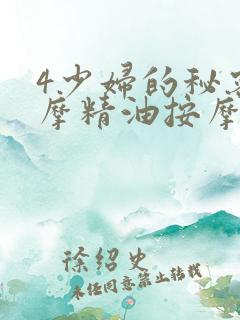 4.少妇的秘密
摩精油按摩
徐绍史
未经同意禁止转载